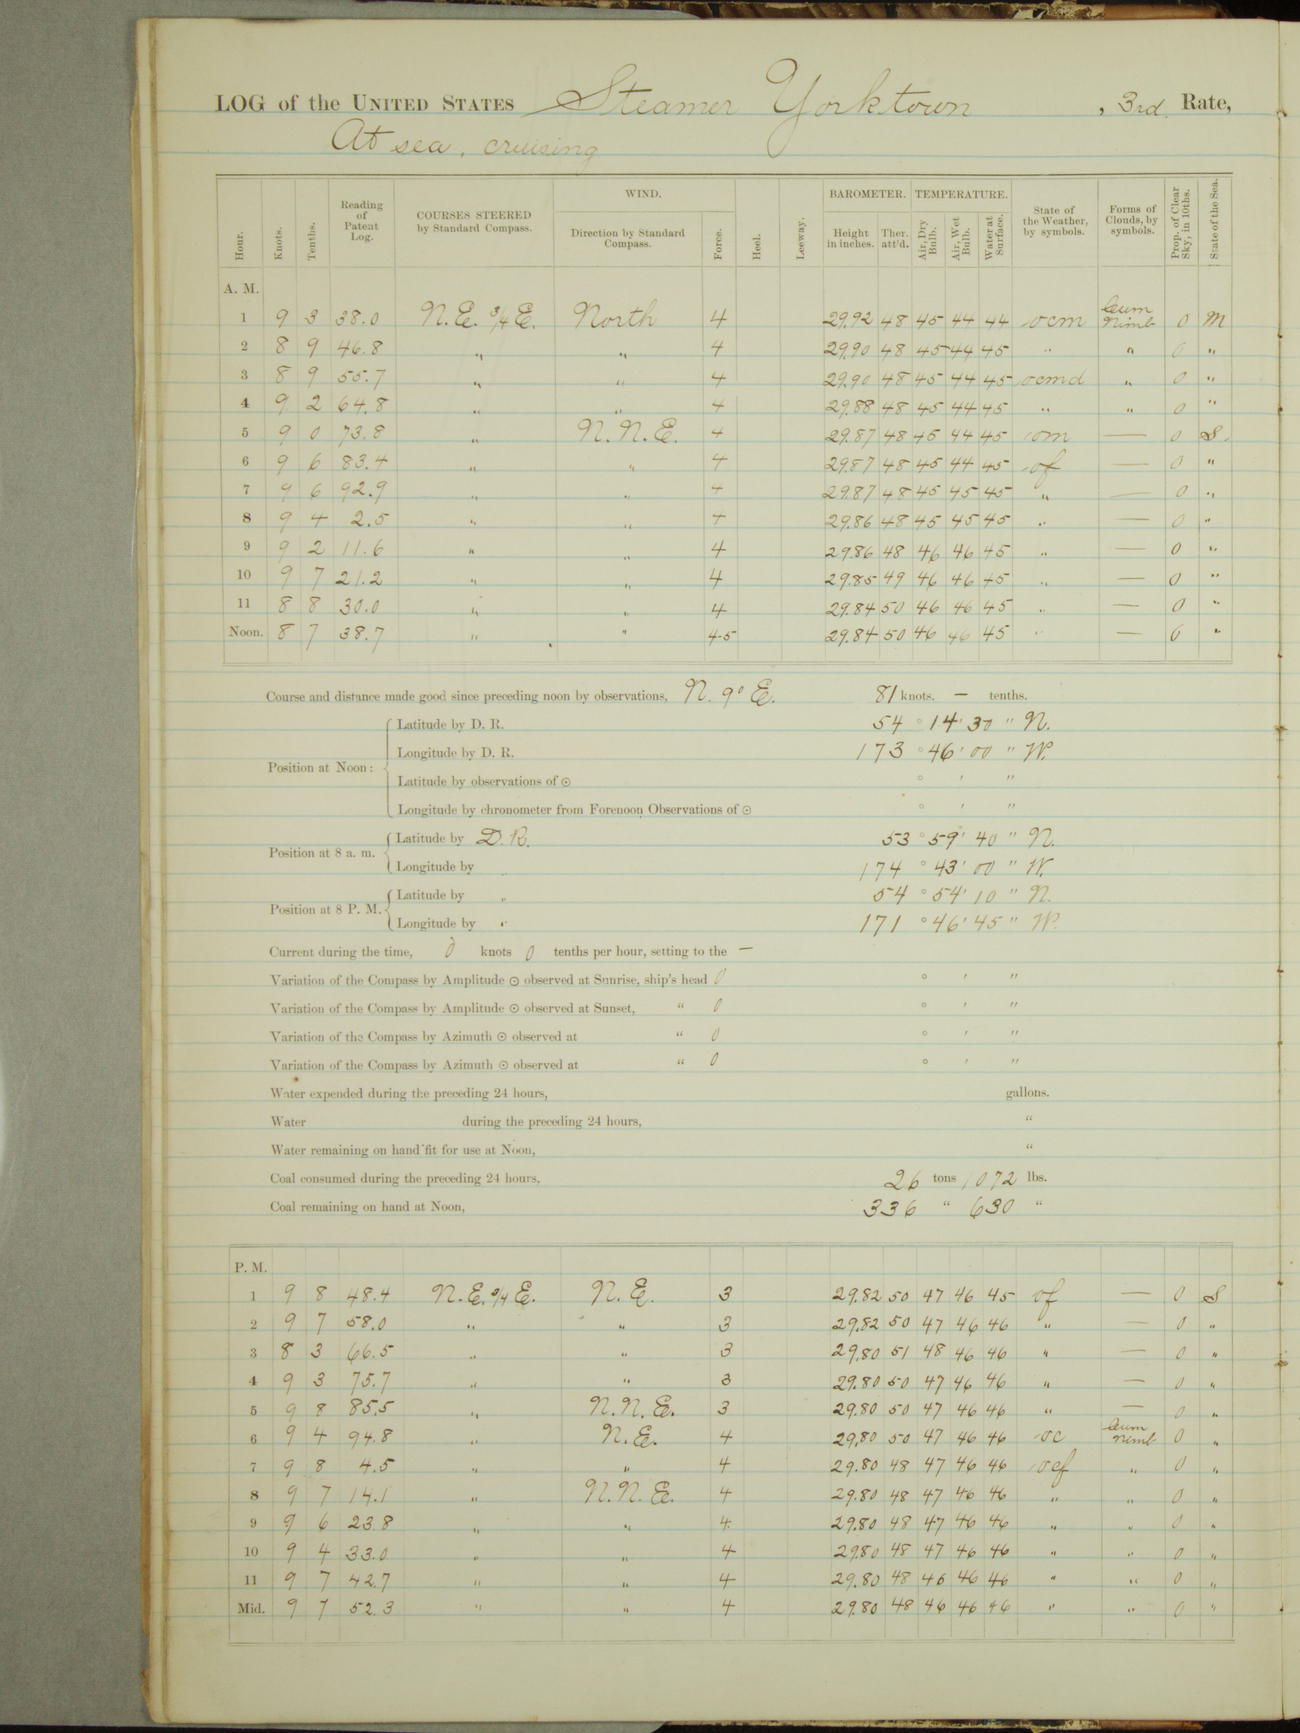 LOG of the UNITED STATES Steamer Yorktown , 3rd Rate,
At sea, cruising
Hour. Knots. Tenths. Reading of Patent Log. COURSES STEERED by Standard Compass. WIND. Direction by Standard Compass. Force. Heel. Leeway. BAROMETER. Height in inches. Ther. att'd. TEMPERATURE. Air, Dry Bulb. Air, Wet Bulb. Water at Surface. State of the Weather, by symbols. Forms of Clouds, by symbols. Prop. of Clear Sky, in 10ths. State of the Sea.
A. M.
1 9 3 38.0 N.E. 3/4 E. North 4 29.92 48 45 44 44 ocm Cum Nimb 0 M
2 8 9 46.8 " " 4 29.90 48 45 44 45 " " 0 "
3 8 9 55.7 " " 4 29.90 48 45 44 45 ocmd " 0 "
4 9 2 64.8 " " 4 29.88 48 45 44 45 " " 0 "
5 9 0 73.8 " N.N.E. 4 29.87 48 45 44 45 om — 0 S.
6 9 6 83.4 " " 4 29.87 48 45 44 45 of — 0 "
7 9 6 92.9 " " 4 29.87 48 45 45 45 " — 0 "
8 9 4 2.5 " " 4 29.86 48 45 45 45 " — 0 "
9 9 2 11.6 " " 4 29.86 48 46 46 45 " — 0 "
10 9 7 21.2 " " 4 29.85 49 46 46 45 " — 0 "
11 8 8 30.0 " " 4 29.84 50 46 46 45 " — 0 "
Noon. 8 7 38.7 " " 4-5 29.84 50 46 46 45 " — 0 "
Course and distance made good since preceding noon by observations, N. 9° E. 81 knots. — tenths.
Latitude by D. R. 54 ° 14 ' 30 " N.
Longitude by D. R. 173 ° 46 ' 00 " W.
Position at Noon:
Latitude by observations of ⊙ ° ' "
Longitude by chronometer from Forenoon Observations of ⊙ ° ' "
Latitude by D.R. 53 ° 59 ' 40 " N.
Position at 8 a. m.
Longitude by " 174 ° 43 ' 00 " W.
Latitude by " 54 ° 54 ' 10 " N.
Position at 8 P. M.
Longitude by " 171 ° 46 ' 45 " W.
Current during the time, 0 knots 0 tenths per hour, setting to the —
Variation of the Compass by Amplitude ⊙ observed at Sunrise, ship's head 0 ° ' "
Variation of the Compass by Amplitude ⊙ observed at Sunset, " 0 ° ' "
Variation of the Compass by Azimuth ⊙ observed at " 0 ° ' "
Variation of the Compass by Azimuth ⊙ observed at " 0 ° ' "
Water expended during the preceding 24 hours, gallons.
Water during the preceding 24 hours, "
Water remaining on hand fit for use at Noon, "
Coal consumed during the preceding 24 hours, 26 tons 1072 lbs.
Coal remaining on hand at Noon, 336 " 630 "
P. M.
1 9 8 48.4 N.E. 3/4 E. N.E. 3 29.82 50 47 46 45 of — 0 S
2 9 7 58.0 " " 3 29.82 50 47 46 46 " — 0 "
3 8 3 66.5 " " 3 29.80 51 48 46 46 " — 0 "
4 9 3 75.7 " " 3 29.80 50 47 46 46 " — 0 "
5 9 8 85.5 " N.N.E. 3 29.80 50 47 46 46 " — 0 "
6 9 4 94.8 " N.E. 4 29.80 50 47 46 46 oc Cum Nimb 0 "
7 9 8 4.5 " " 4 29.80 48 47 46 46 ocf " 0 "
8 9 7 14.1 " N.N.E. 4 29.80 48 47 46 46 " " 0 "
9 9 6 23.8 " " 4 29.80 48 47 46 46 " " 0 "
10 9 4 33.0 " " 4 29.80 48 47 46 46 " " 0 "
11 9 7 42.7 " " 4 29.80 48 46 46 46 " " 0 "
Mid. 9 7 52.3 " " 4 29.80 48 46 46 46 " " 0 "